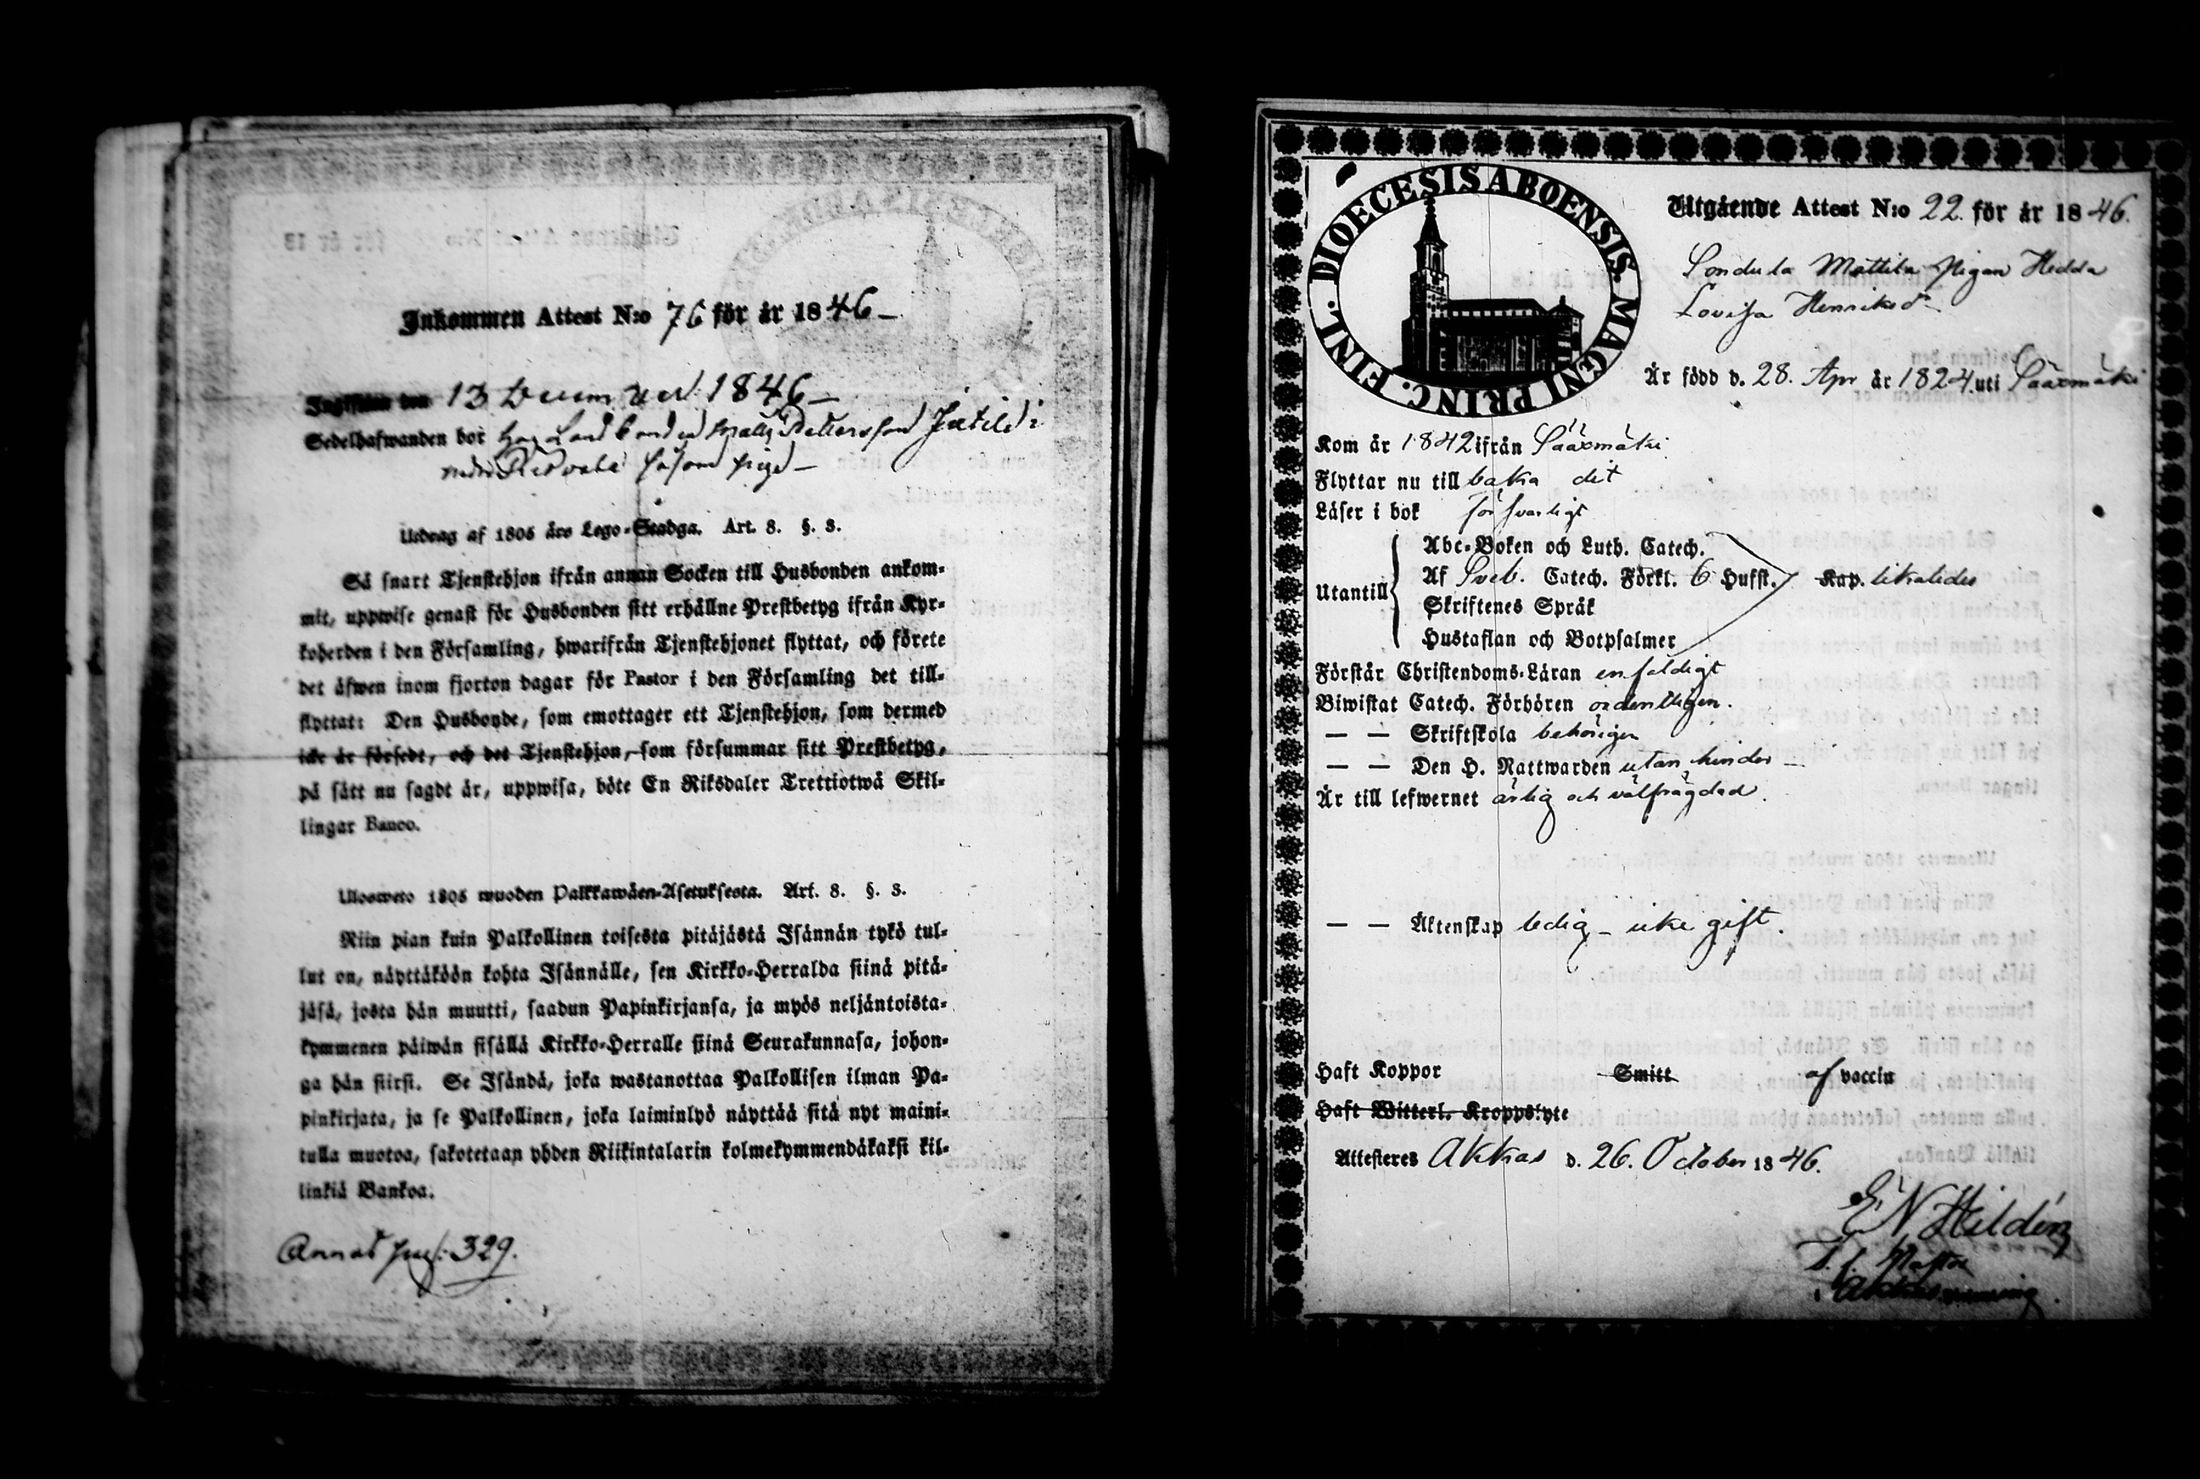 Inkommen Attest N:o 76 för år 1846 –
13 December 1846 –
Sedelhafwanden bor hos Landbonden Matts
under såsom piga –
Utdrag af 1805 års Lego-Stadga. Art. 8. §. 3.
Så snart Tjenstehjon ifrån annan Socken till Husbonden ankom-
mit, uppwise genast för Husbonden sitt erhållne Prestbetyg ifrån Kyr-
koherden i den Församling, hwarifrån Tjenstehjonet flyttat, och förete
det äfwen inom fjorton dagar för Pastor i den Församling det till-
flyttat: Den Husbonde, som emottager ett Tjenstehjon, som dermed
icke är försedt, och det Tjenstehjon, som försummar sitt Prestbetyg,
på sätt nu sagdt är, uppwisa, böte En Riksdaler Trettiotwå Skil-
lingar Banco.
Ulosweto 1805 wuoden Palkkawäen-Asetuksesta. Art. 8. §. 3.
Niin pian kuin Palkollinen toisesta pitäjästä Isännän tykö tul-
lut on, näyttäköön kohta Isännälle, sen Kirkko-Herralda siinä pitä-
jäsä, josta hän muutti, saadun Papinkirjansa, ja myös neljäntoista-
kymmenen päiwän sisällä Kirkko-Herralle siinä Seurakunnasa, johon-
ga hän siirsi. Se Isändä, joka wastanottaa Palkollisen ilman Pa-
pinkirjata, ja se Palkollinen, joka laiminlyö näyttää sitä nyt maini-
tulla muotoa, sakotetaan yhden Riikintalarin kolmekymmendäkaksi kil-
linkiä Bankoa.
pag: 329.
DIOECESIS ABOENSIS. MAGNI PRINC. FINL.
Utgående Attest N:o 22. för år 1846.
Sondula Mattila Pigan Hedda
Lovisa Henriksdr
Är född d. 28. Apr år 1824 uti Sääxmäki
Kom år 1842 ifrån Sääxmäki
Flyttar nu till baka dit
Läser i bok försvarligt
Utantill
Abc-Boken och Luth. Catech.
Af Sveb. Catech. Förkl. 6 Hufst. Kap. likaledes
Skriftenes Språk
Hustaflan och Botpsalmer
Förstår Christendoms-Läran enfaldigt
Biwistat Catech. Förhören ordentligen.
— — Skriftskola behörigen
— — Den H. Nattwarden utan hinder –
Är till lefwernet ärlig och välfrägdad.
— — Äktenskap ledig – icke gift.
Haft Koppor Smitt af vaccin
Haft Witterl. Kroppslyte
Attesteres Akkas d. 26. October 1846.
E N Hildén
T. f. Pastor
i Akkas